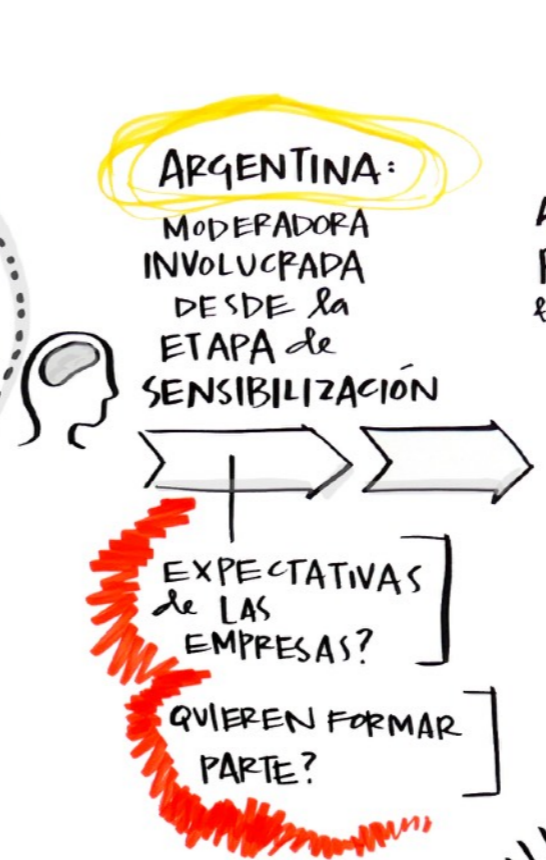 ARGENTINA:
MODERADORA
INVOLUCRADA
DESDE la
ETAPA de
SENSIBILIZACIÓN
EXPECTATIVAS
de LAS
EMPRESAS?
QUIEREN FORMAR
PARTE?